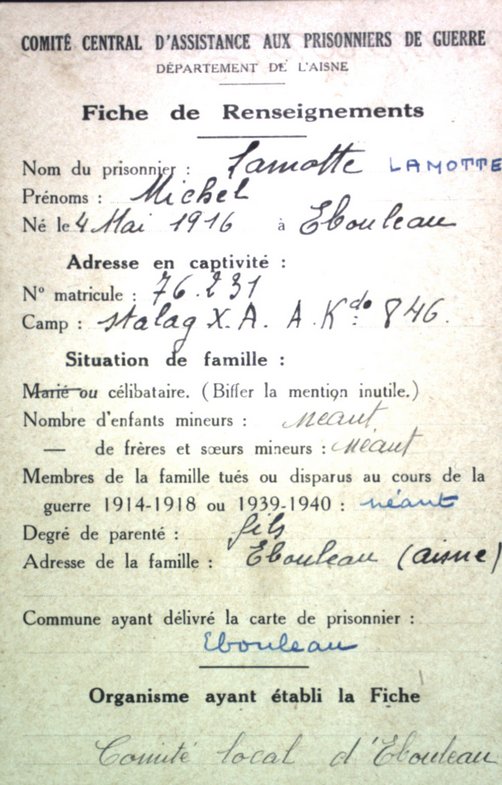 COMITÉ CENTRAL D'ASSISTANCE AUX PRISONNIERS DE GUERRE
DÉPARTEMENT DE L'AISNE
Fiche de Renseignements
Nom du prisonnier : Lamotte LAMOTTE
Prénoms : Michel
Né le 4 Mai 1916 à Ebouleau
Adresse en captivité :
N° matricule : 76.231
Camp : stalag X. A. A. Kdo 846.
Situation de famille :
Marié ou célibataire. (Biffer la mention inutile.)
Nombre d'enfants mineurs : Néant
— de frères et sœurs mineurs : Néant
Membres de la famille tués ou disparus au cours de la
guerre 1914-1918 ou 1939-1940 : néant
Degré de parenté : fils
Adresse de la famille : Ebouleau (aisne)
Commune ayant délivré la carte de prisonnier :
Ebouleau
Organisme ayant établi la Fiche
Comité local d'Ebouleau